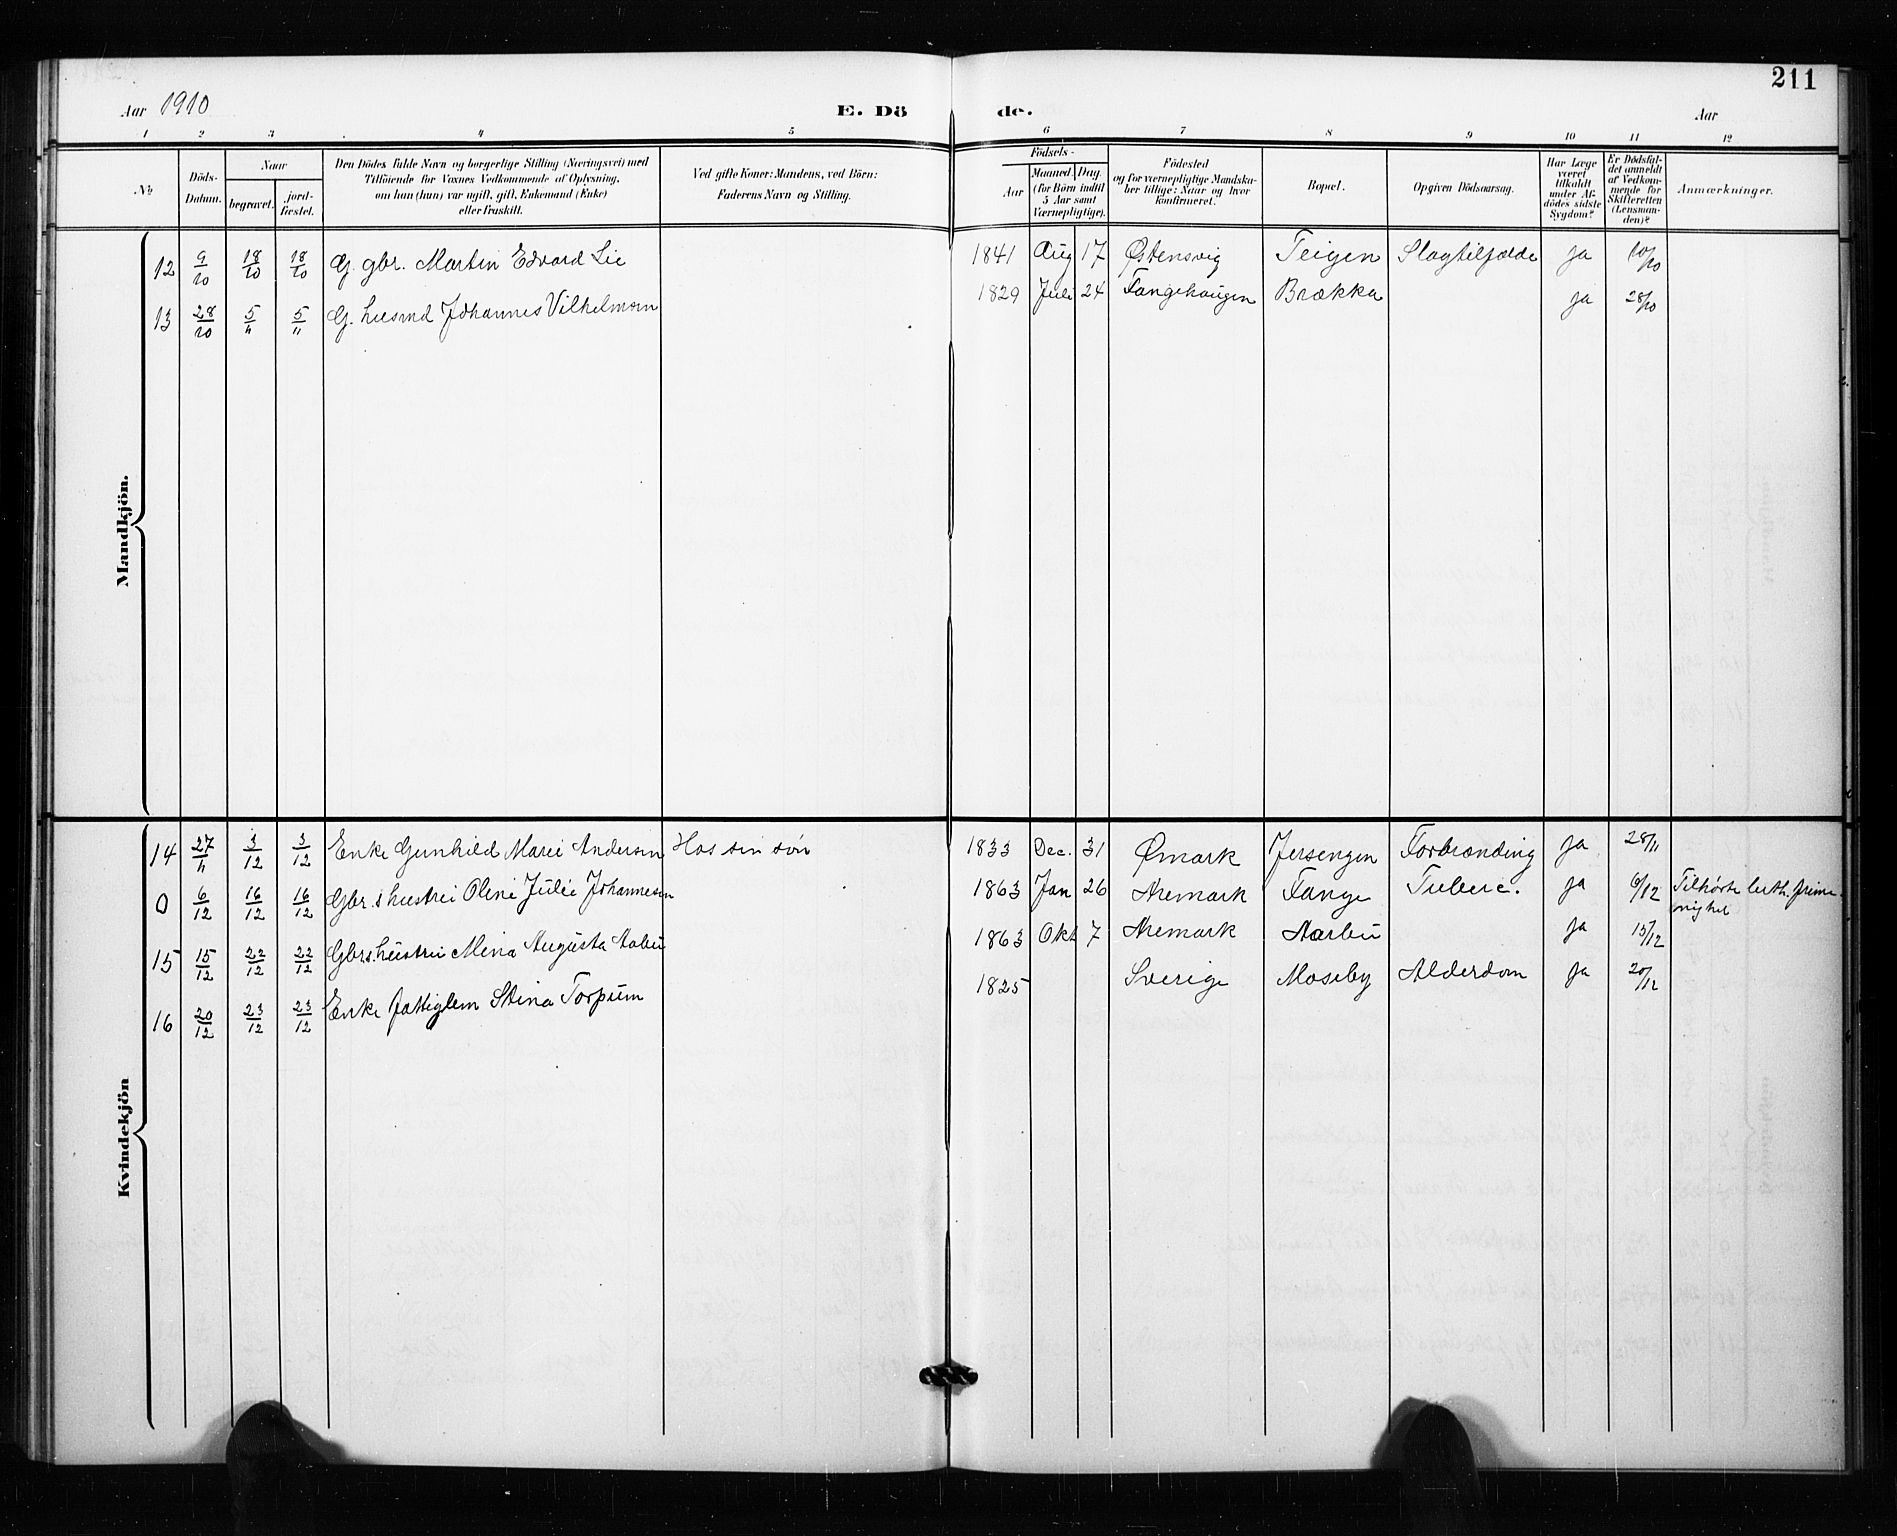 211
Aar 1910 E. Dö de. Aar
1 2 3 4 5 6 7 8 9 10 11 12
No
Döds-Datum.
Naar
begravet.
jord-fæstet.
Den Dödes fulde Navn og borgerlige Stilling (Næringsvei) med
Tilföiende for Voxnes Vedkommende af Oplysning,
om han (hun) var ugift, gift, Enkemand (Enke)
eller fraskilt.
Ved gifte Koner: Mandens, ved Börn:
Faderens Navn og Stilling.
Födsels-
Aar
Maaned. Dag.
(for Börn indtil
5 Aar samt
Værnepligtige).
Födested
og for værnepligtige Mandska-
ber tillige: Naar og hvor
konfirmeret.
Bopæl.
Opgiven Dödsaarsag.
Har Læge
været
tilkaldt
under Af-
dödes sidste
Sygdom?
Er Dödsfal-
det anmeldt
af Vedkom-
mende for
Skifteretten
(Lensman-
den)?
Anmærkninger.
Mandkjön.
12 9/10 18/10 18/10 G. gbr. Martin Edvard Lie 1841 Aug 17 Østensvig Teigen Slagtilfælde ja 10/10
13 28/10 5/11 5/11 G. husmd Johannes Vilhelmsen 1829 Juli 24 Tangehaugen Brække ja 28/10
Kvindekjön
14 27/11 3/12 3/12 Enke Gunhild Marie Andersen Hos sin søn 1833 Dec. 31 Ømark Jersengen Forbrænding ja 28/11
0 6/12 16/12 16/12 Gbr.s hustru Oline Julie Johannesen 1863 Jan 26 Aremark Tange Tuberc. ja 6/12 Tilhørte luth. frime-
nighet
15 15/12 22/12 22/12 Gbrs. hustru Mina Augusta Aabu 1863 Okt 7 Aremark Aarbu ja 15/12
16 20/12 23/12 23/12 Enke fattiglem Stina Torpum 1825 Sverige Moseby Alderdom ja 20/12